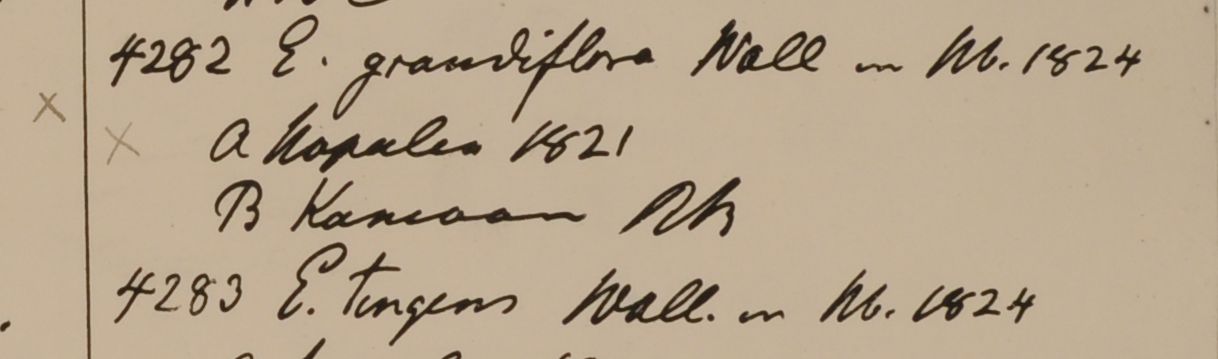 4282 E. grandiflora Wall in M. 1824
A Napalia 1821
B Kamaoon RB
4283 E. tingens Wall. in M. 1824